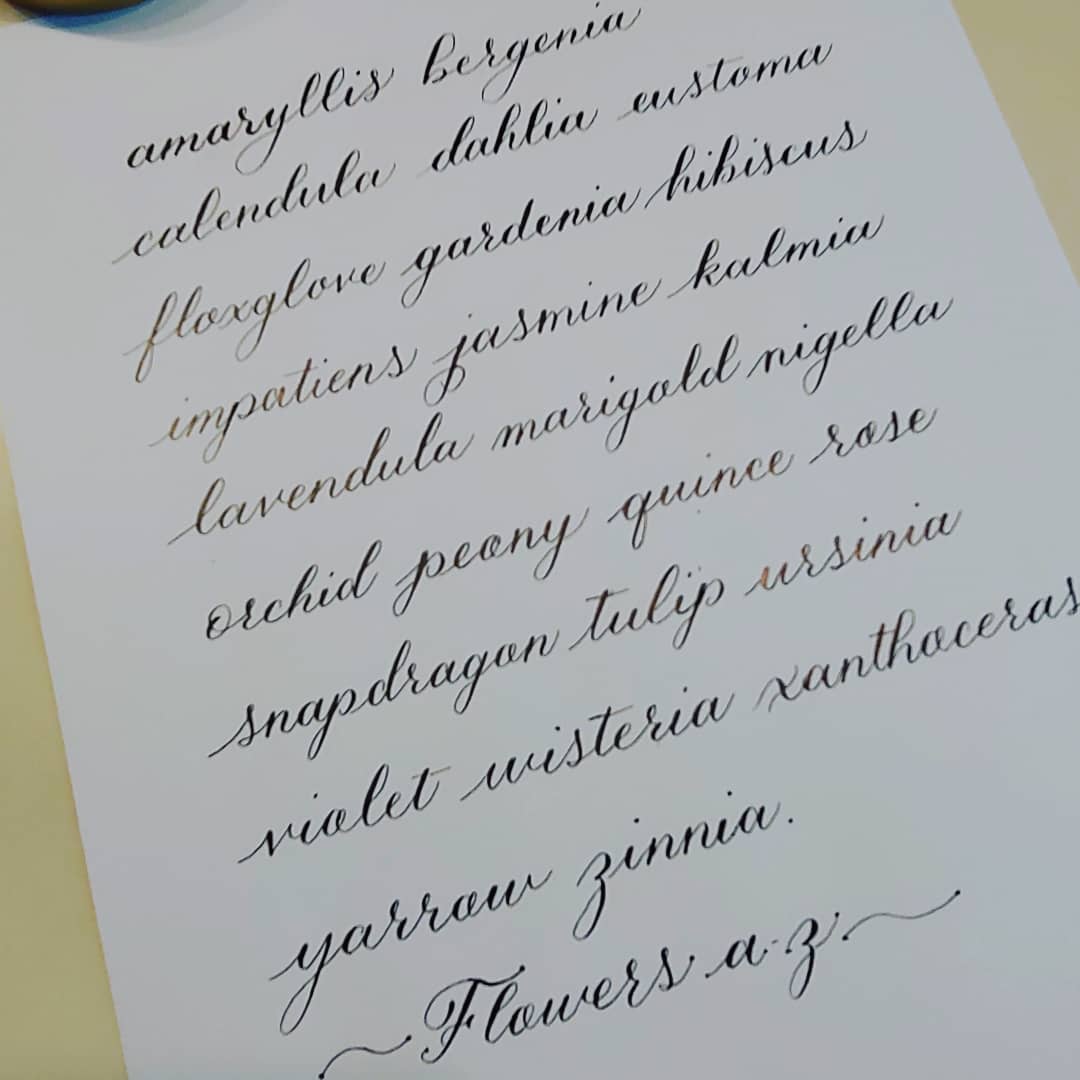 amaryllis bergenia
calendula dahlia eustoma
floxglove gardenia hibiscus
impatiens jasmine kalmia
lavendula marigold nigella
orchid peony quince rose
snapdragon tulip ursinia
violet wisteria xanthoceras
yarrow zinnia.
~Flowers a-z~